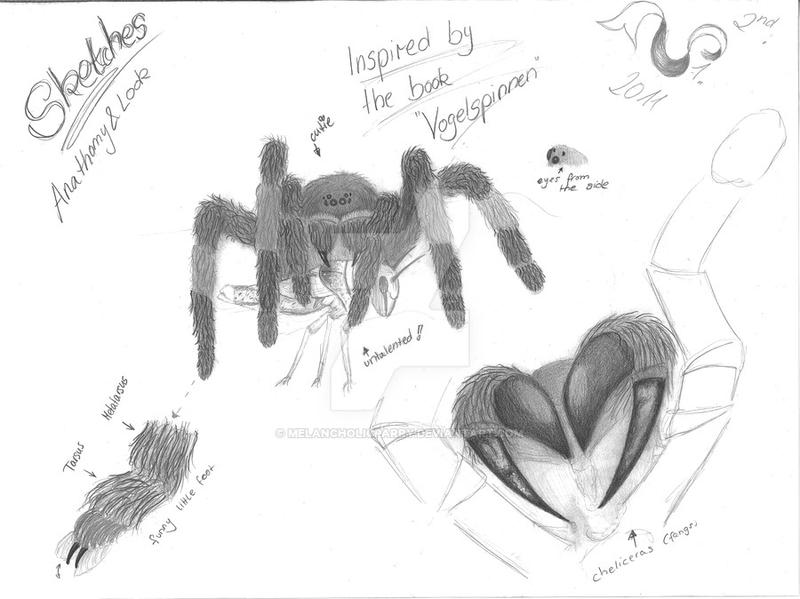 Sketches
Anathomy & Look
Inspired by
the book
"Vogelspinnen"
2nd
1.
2011
cutie
eyes from
the side
untalented !!
Metatarsus
Tarsus
funny little foot
cheliceras (fangs)
© MELANCHOLICPARRY.DEVIANTART.COM